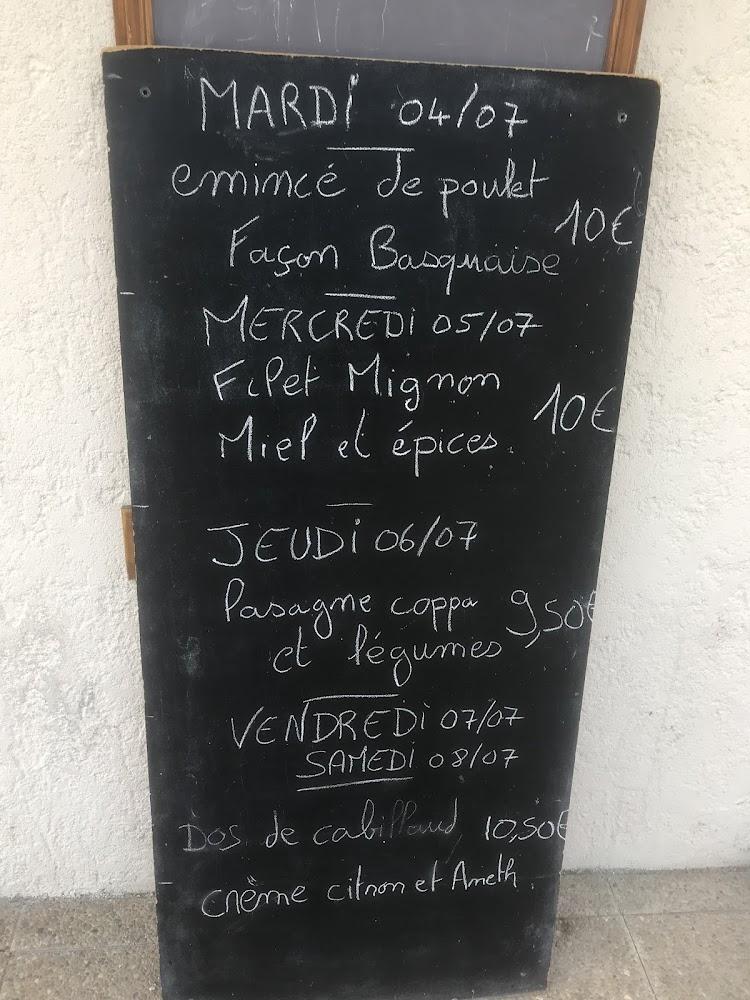 MARDI 04/07
emincé de poulet
Façon Basquaise 10€
MERCREDI 05/07
Filet Mignon
Miel et épices 10€
JEUDI 06/07
lasagne coppa 9,50€
et légumes
VENDREDI 07/07
SAMEDI 08/07
Dos de cabillaud 10,50€
crème citron et Aneth